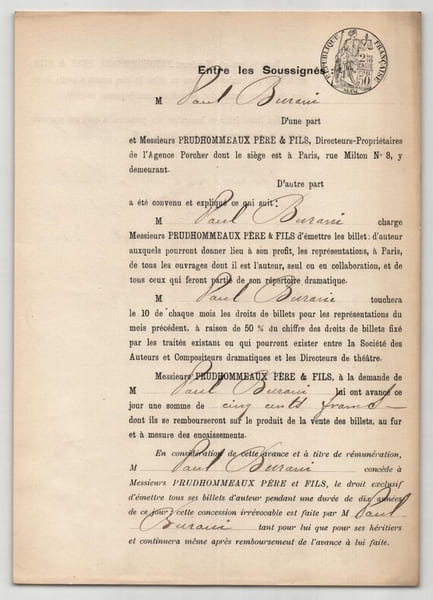 RÉPUBLIQUE FRANÇAISE
50
Entre les Soussignés :
M Paul Burani
D'une part
et Messieurs PRUDHOMMEAUX PÈRE & FILS, Directeurs-Propriétaires
de l'Agence Porcher dont le siège est à Paris, rue Milton No 8, y
demeurant.
D'autre part
a été convenu et expliqué ce qui suit :
M Paul Burani charge
Messieurs PRUDHOMMEAUX PÈRE & FILS d'émettre les billets d'auteur
auxquels pourront donner lieu à son profit, les représentations, à Paris,
de tous les ouvrages dont il est l'auteur, seul ou en collaboration, et de
tous ceux qui feront partie de son répertoire dramatique.
M Paul Burani touchera
le 10 de chaque mois les droits de billets pour les représentations du
mois précédent, à raison de 50 % du chiffre des droits de billets fixé
par les traités existant ou qui pourront exister entre la Société des
Auteurs et Compositeurs dramatiques et les Directeurs de théâtre.
Messieurs PRUDHOMMEAUX PÈRE & FILS, à la demande de
M Paul Burani lui ont avancé ce
jour une somme de cinq cents francs
dont ils se rembourseront sur le produit de la vente des billets, au fur
et à mesure des encaissements.
En considération de cette avance et à titre de rémunération,
M Paul Burani concède à
Messieurs PRUDHOMMEAUX PÈRE ET FILS, le droit exclusif
d'émettre tous ses billets d'auteur pendant une durée de dix années
de ce jour cette concession irrévocable est faite par M Paul
Burani tant pour lui que pour ses héritiers
et continuera même après remboursement de l'avance à lui faite.